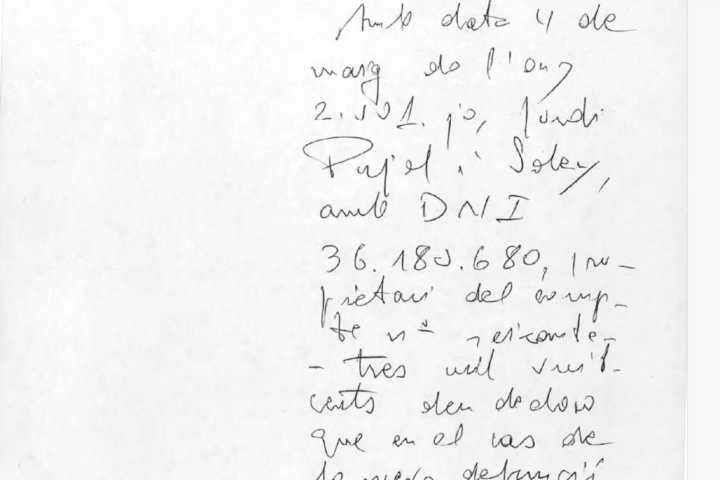 Amb data 4 de
març de l'any
2.001. jo, Jordi
Pujol i Soley,
amb DNI
36.180.680, pro-
pietari del comp-
te nº seixante-
- tres mil vuit-
cents deu declaro
que en el cas de
la meva defunció